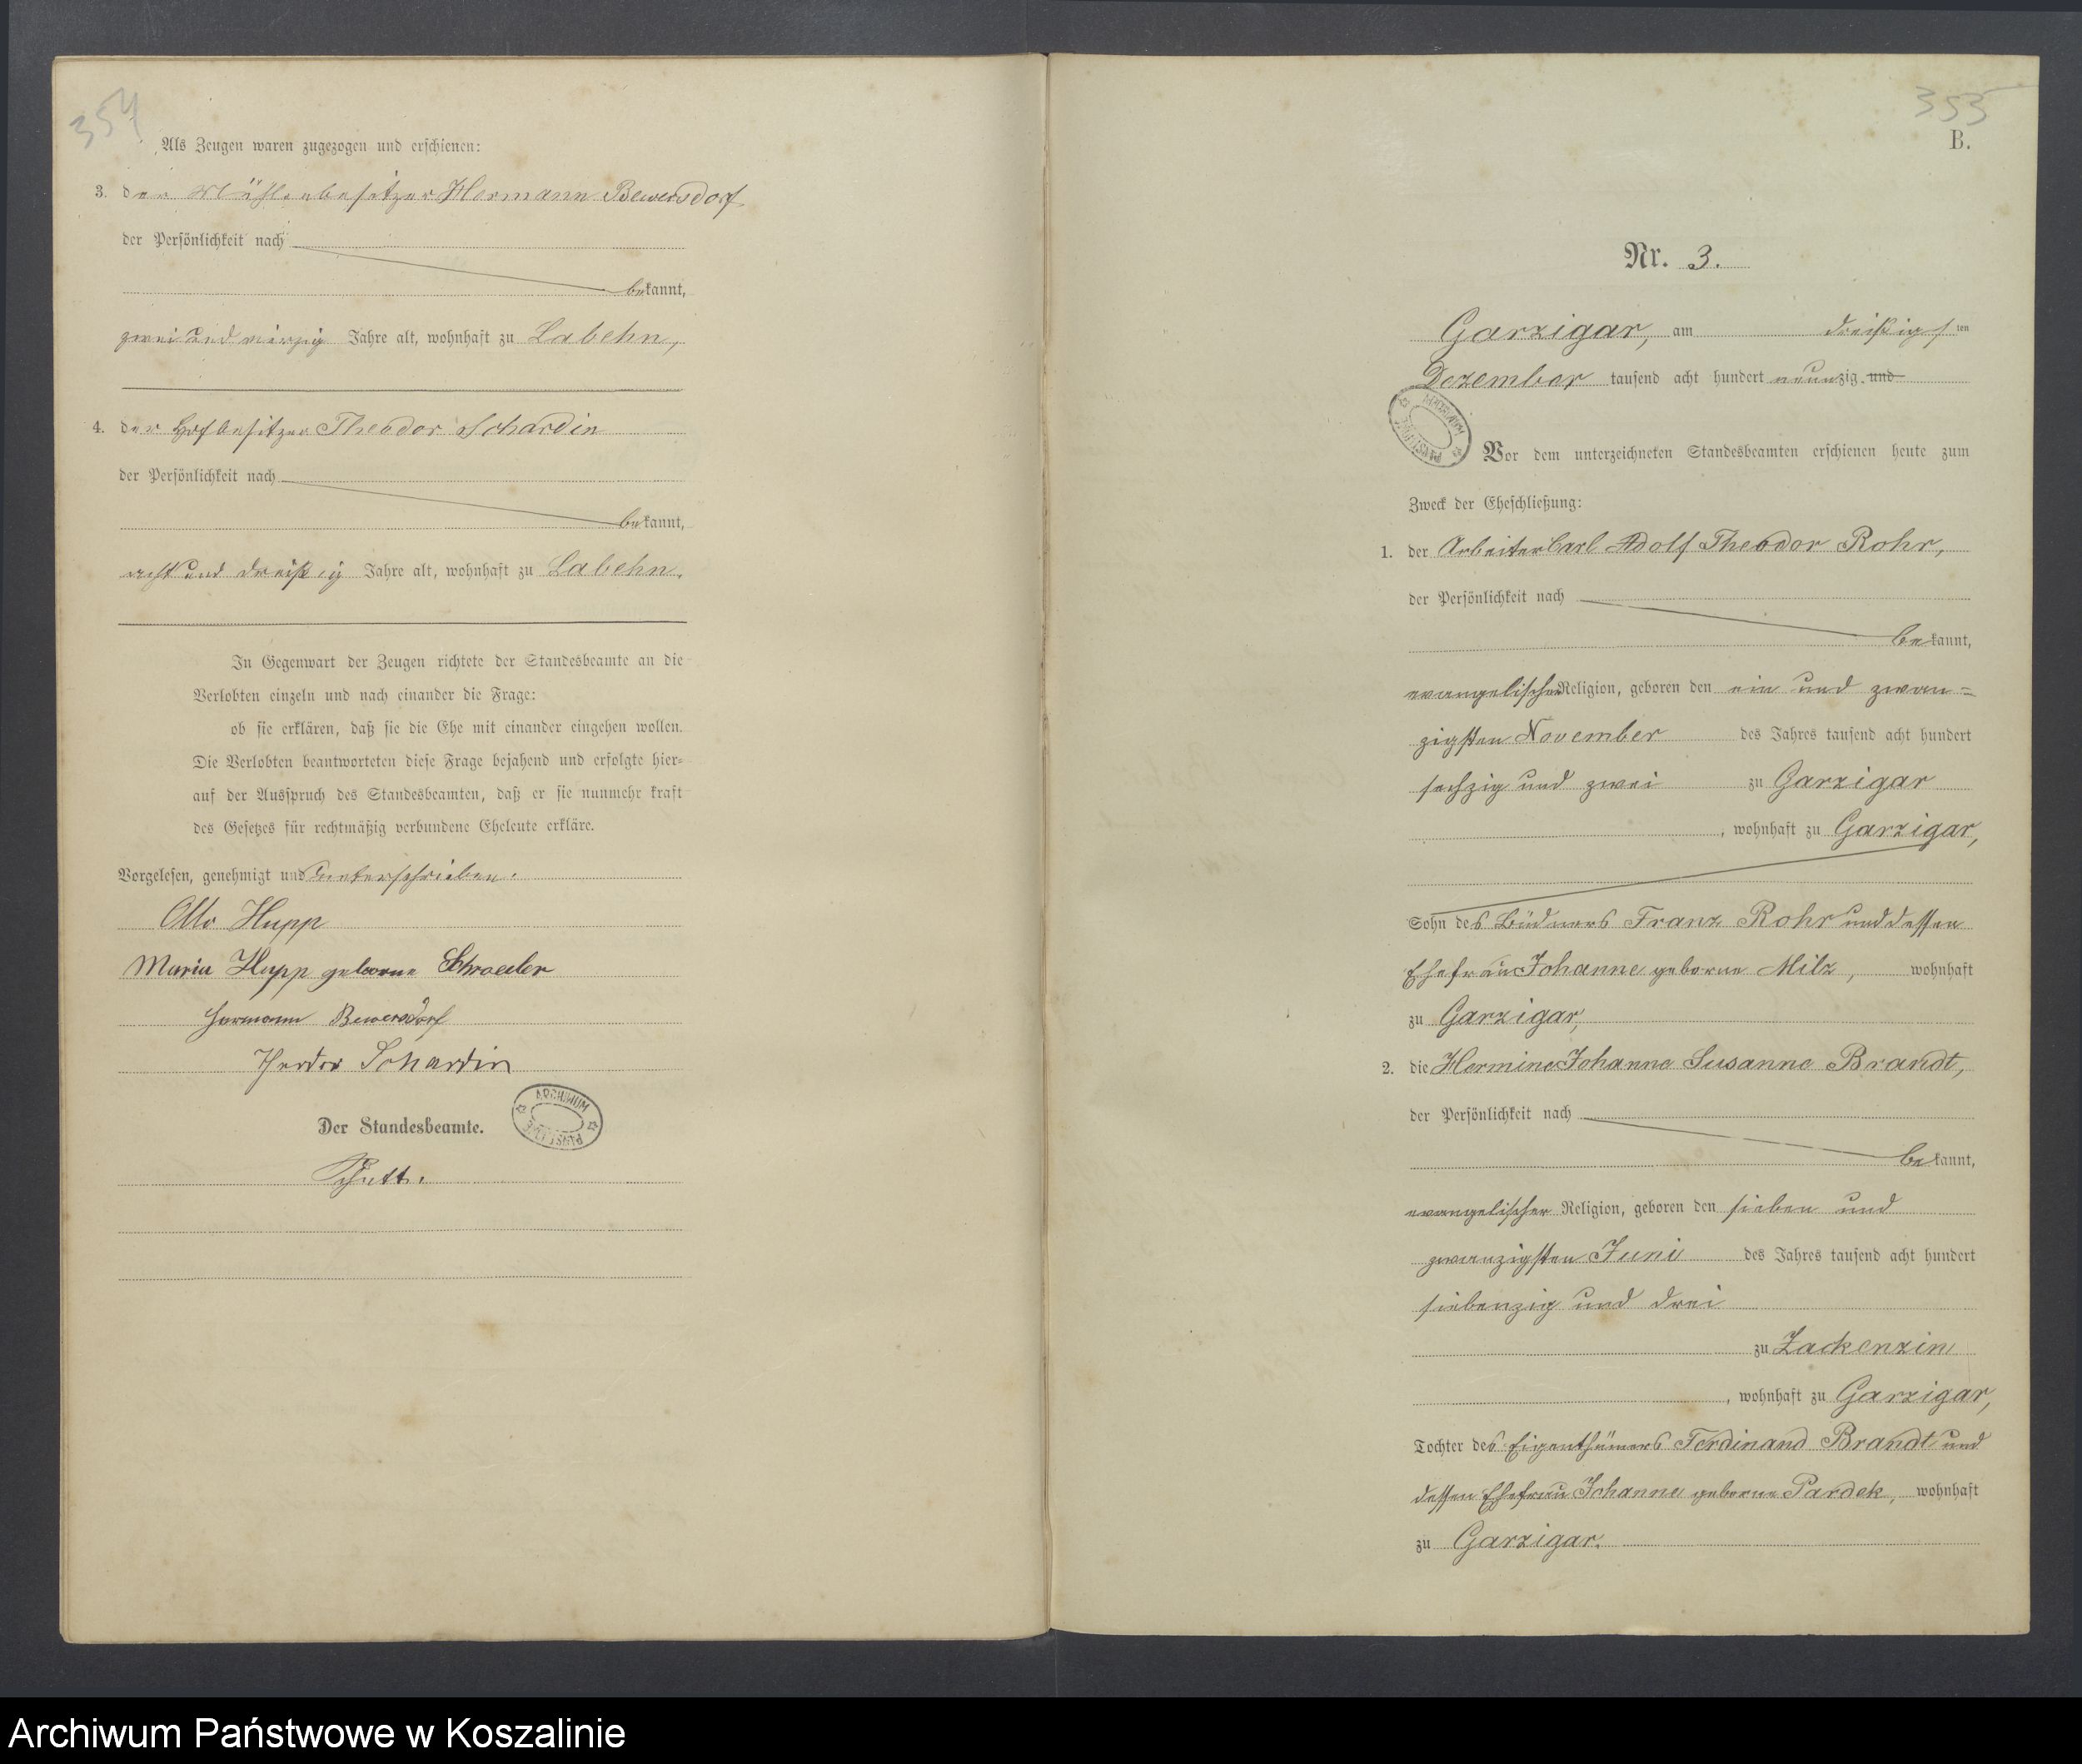 354
Als Zeugen waren zugezogen und erschienen:
3. der Mühlenbesitzer Hermann Bewersdorf
der Persönlichkeit nach
bekannt,
zwei und vierzig Jahre alt, wohnhaft zu Labehn,
4. der Hofbesitzer Theodor Schardin
der Persönlichkeit nach
bekannt,
acht und dreißig Jahre alt, wohnhaft zu Labehn.
In Gegenwart der Zeugen richtete der Standesbeamte an die
Verlobten einzeln und nach einander die Frage:
ob sie erklären, daß sie die Ehe mit einander eingehen wollen.
Die Verlobten beantworteten diese Frage bejahend und erfolgte hier-
auf der Ausspruch des Standesbeamten, daß er sie nunmehr kraft
des Gesetzes für rechtmäßig verbundene Eheleute erkläre.
Vorgelesen, genehmigt und unterschrieben.
Otto Hupp
Maria Hupp geborne Schroeder
Hermann Bewersdorf
Theodor Schardin
ARCHIWUM
Der Standesbeamte.
353
B.
Nr. 3.
Garzigar, am dreißigsten
Dezember tausend acht hundert neunzig und
Vor dem unterzeichneten Standesbeamten erschienen heute zum
Zweck der Eheschließung:
1. der Arbeiter Carl Adolf Theodor Rohr,
der Persönlichkeit nach
bekannt,
evangelischer Religion, geboren den ein und zwan-
zigsten November des Jahres tausend acht hundert
sechzig und zwei zu Garzigar
, wohnhaft zu Garzigar,
Sohn des Büdners Franz Rohr und dessen
Ehefrau Johanne geborne Milz, wohnhaft
zu Garzigar,
2. die Hermine Johanne Susanne Brandt,
der Persönlichkeit nach
bekannt,
evangelischer Religion, geboren den sieben und
zwanzigsten Juni des Jahres tausend acht hundert
siebenzig und drei
zu Zackenzin
, wohnhaft zu Garzigar,
Tochter des Eigenthümers Ferdinand Brandt und
dessen Ehefrau Johanne geborne Pardek, wohnhaft
zu Garzigar.
Archiwum Państwowe w Koszalinie